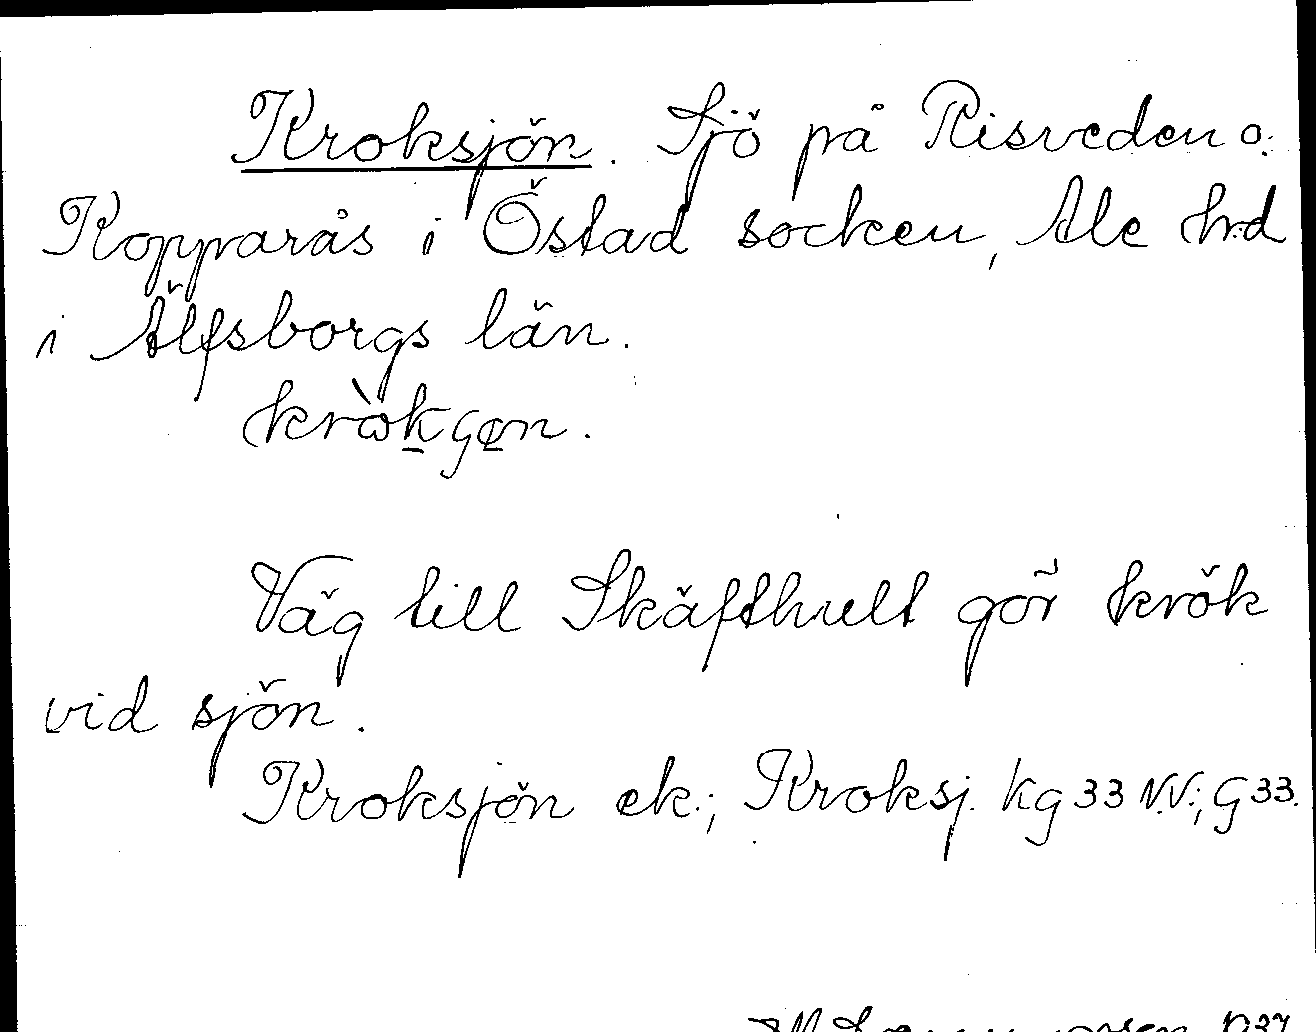 Kroksjön. Sjö på Risveden o.
Kopparås i Östad socken, Ale hd
i Älfsborgs län.
Väg till Skäfthult gör krök
vid sjön.
Kroksjön ek.; Kroksj. Kg 33 NV.; G 33.